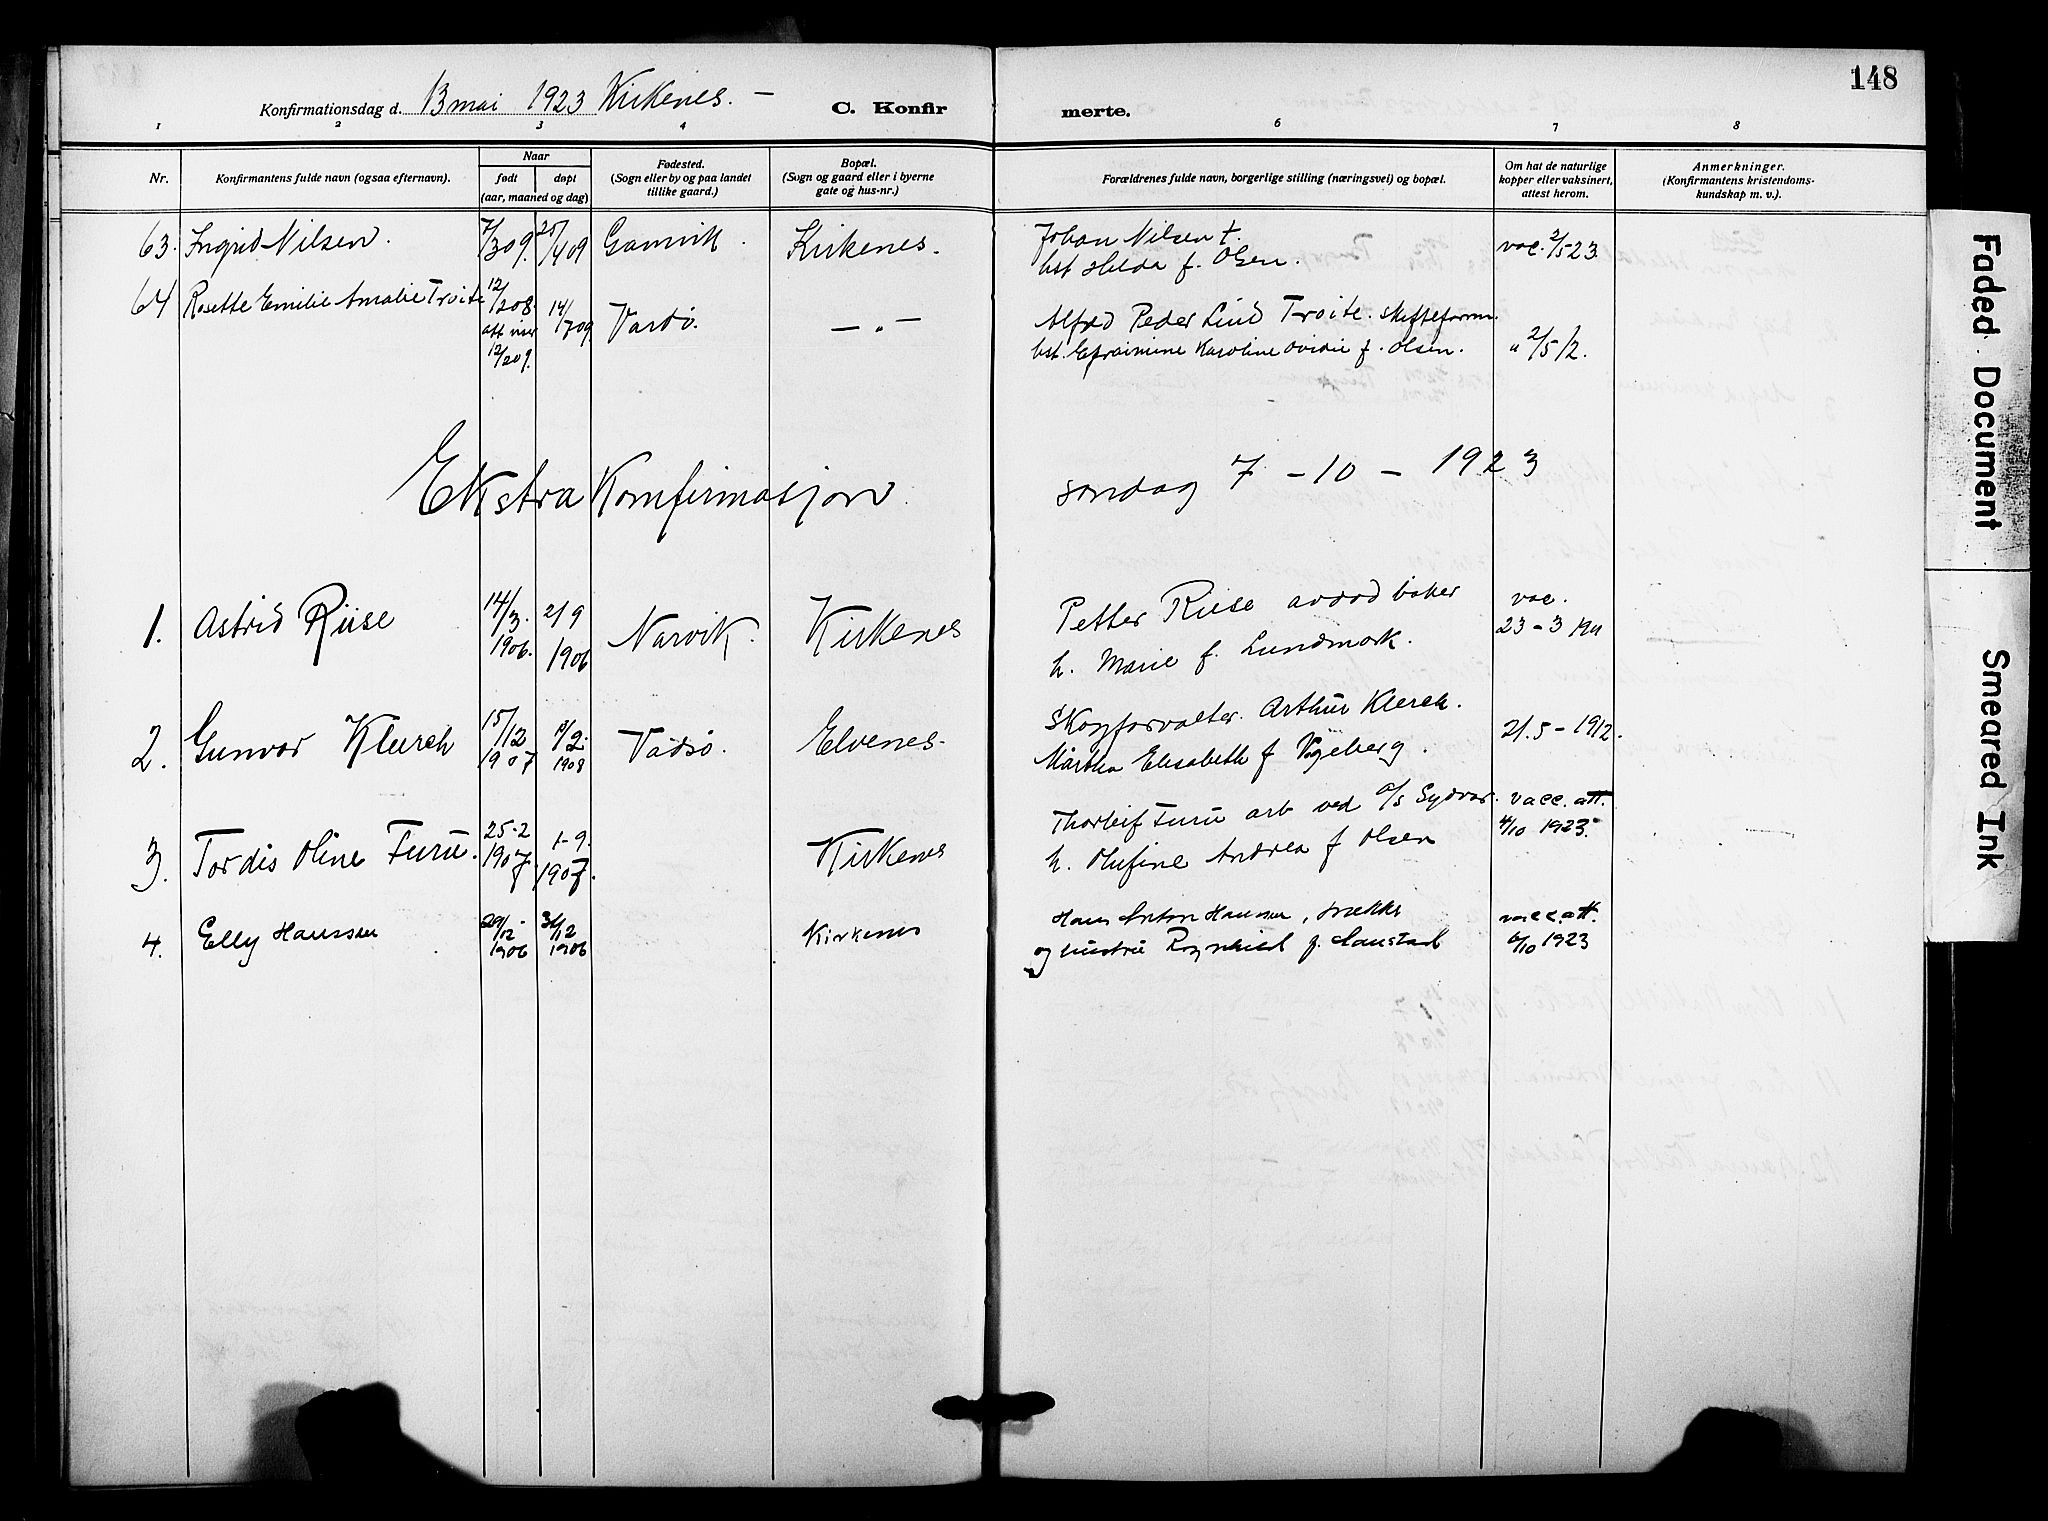 148
Konfirmationsdag d. 13 mai 1923 Kirkenes. –
C. Konfirmerte.
1 2 3 4 5 6 7 8
Nr.
Konfirmantens fulde navn (ogsaa efternavn).
Naar
født
døpt
(aar, maaned og dag)
Fødested.
(Sogn eller by og paa landet
tillike gaard.)
Bopæl.
(Sogn og gaard eller i byerne
gate og hus-nr.)
Forældrenes fulde navn, borgerlige stilling (næringsvei) og bopæl.
Om hat de naturlige
kopper eller vaksinert,
attest herom.
Anmerkninger.
(Konfirmantens kristendoms-
kundskap m. v.).
63. Ingrid Nilsen. 7/309. 25/409 Gamvik. Kirkenes. Johan Nilsen †. vac. 2/523.
hst Hilda f. Olsen.
64 Rosette Emilie Amalie Troite 12/208. 14/709. Vardö. – „ – Alfred Peder Lind Troite. skifteform.
12/209. hst. Efraimine Karoline Ovidie f. Olsen. " 2/512.
Ekstra Konfirmasjon. søndag 7 – 10 – 1923
1. Astrid Riise 14/3. 1906. 2/9 1906 Narvik. Kirkenes Petter Riise avdød baker vac.
h. Marie f. Lundmark. 23-3 1911
2. Gunvor Klerck 15/12 1907 /2. 1908 Vadsø. Elvenes. Skogforvalter. Arthur Klerck. 21.5-1912.
Märtha Elisabeth f
3. Tordis Oline Furu. 25-2 1907 1-9. 1907. Kirkenes Thorleif Furu arb ved A/S Sydvar. vacc. att.
h. Olufine Andrea f Olsen 4/10 1923.
4. Elly Hanssen 29/12 1906 31/12 1906 Kirkenes Hans Anton Hanssen, vacc. att.
og hustru Ragnhild f. 6/10 1923
Faded Document
Smeared Ink